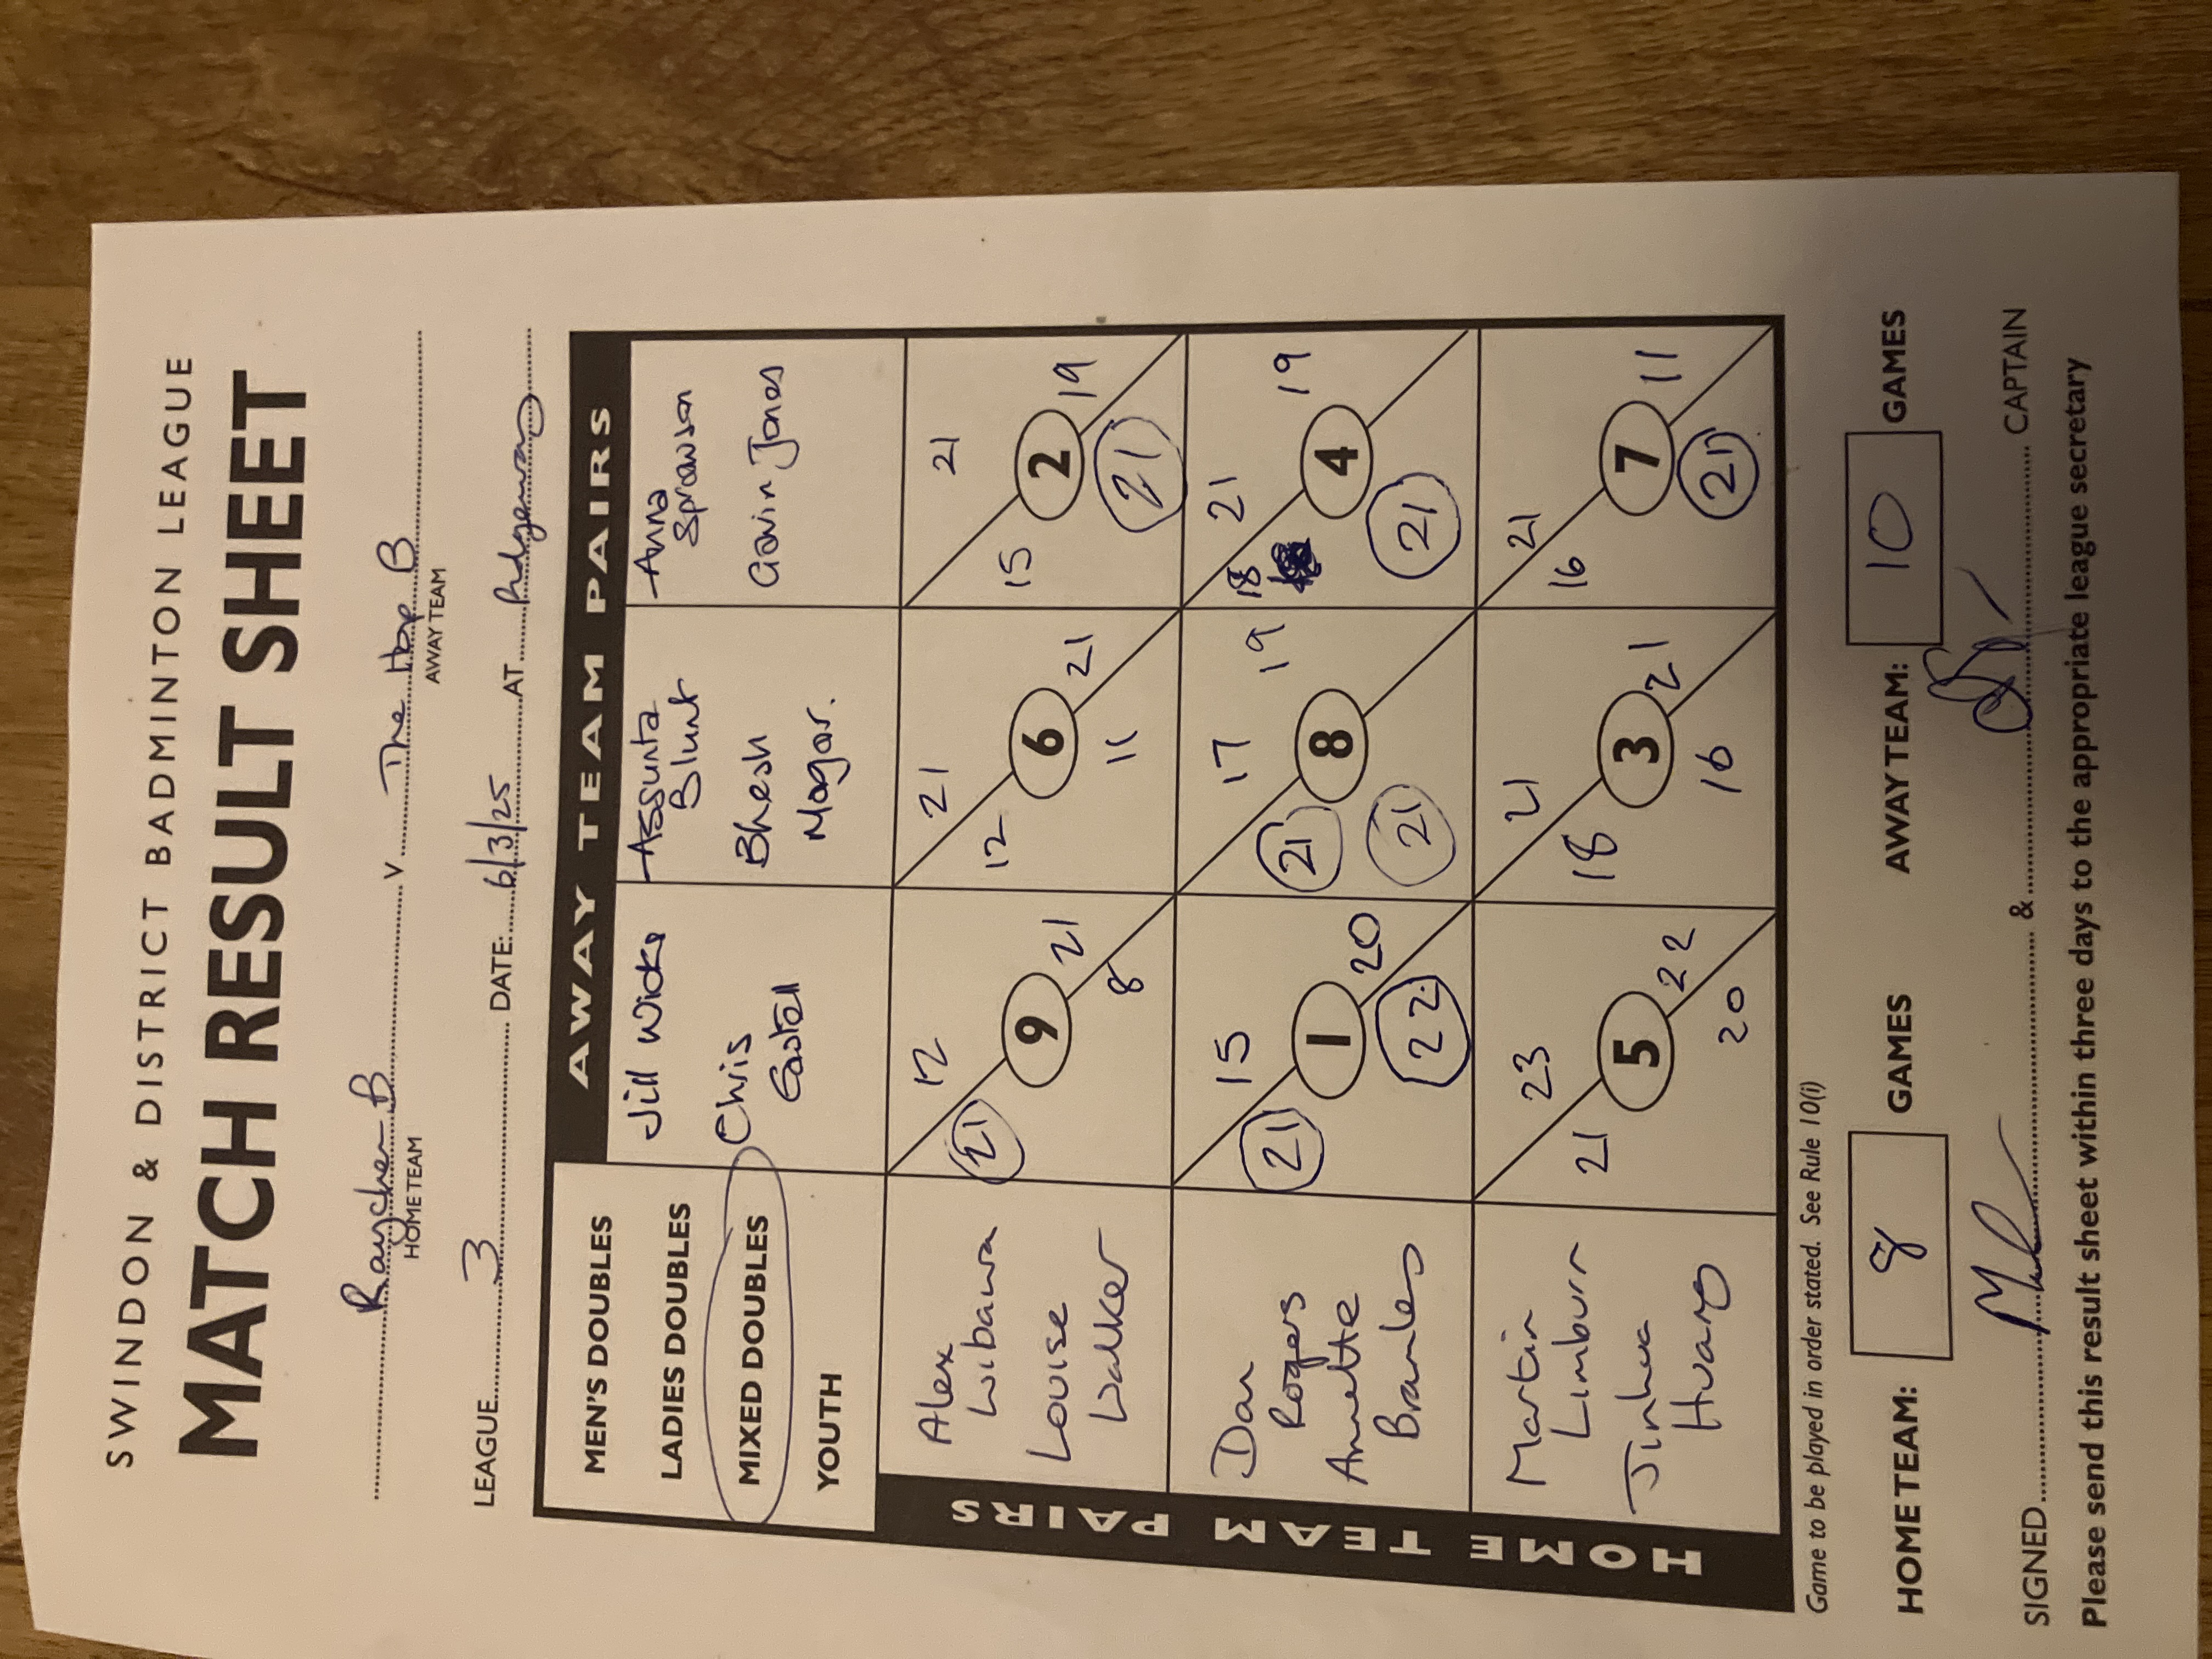 SWINDON & DISTRICT BADMINTON LEAGUE
MATCH RESULT SHEET
Raychem B v The Hop B
HOME TEAM AWAY TEAM
LEAGUE 3 DATE: 6/3/25 AT Ridgeway
AWAY TEAM PAIRS
MEN'S DOUBLES
LADIES DOUBLES
MIXED DOUBLES
YOUTH
Jill Wicks
Chris
Assunta
Blunt
Bhesh
Magar.
Anna
Sprowson
Gavin Jones
HOME TEAM PAIRS
Alex
Wibawa
Louise
Walker
12
21 9 21
8
21
12 6 21
11
21
15 2 19
21
Dan
Rogers
Annette
Brambles
15
21 1 20
22
17 19
21 8
21
21 19
18 4
21
Martin
Limburn
Jinhua
Huang
23
21 5 22
20
21
18 3 21
16
21
16 7 11
21
Game to be played in order stated. See Rule 10(i)
HOME TEAM: 8 GAMES AWAY TEAM: 10 GAMES
SIGNED & CAPTAIN
Please send this result sheet within three days to the appropriate league secretary